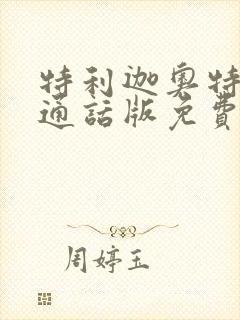 特利迦奥特
通話版免費
周婷玉